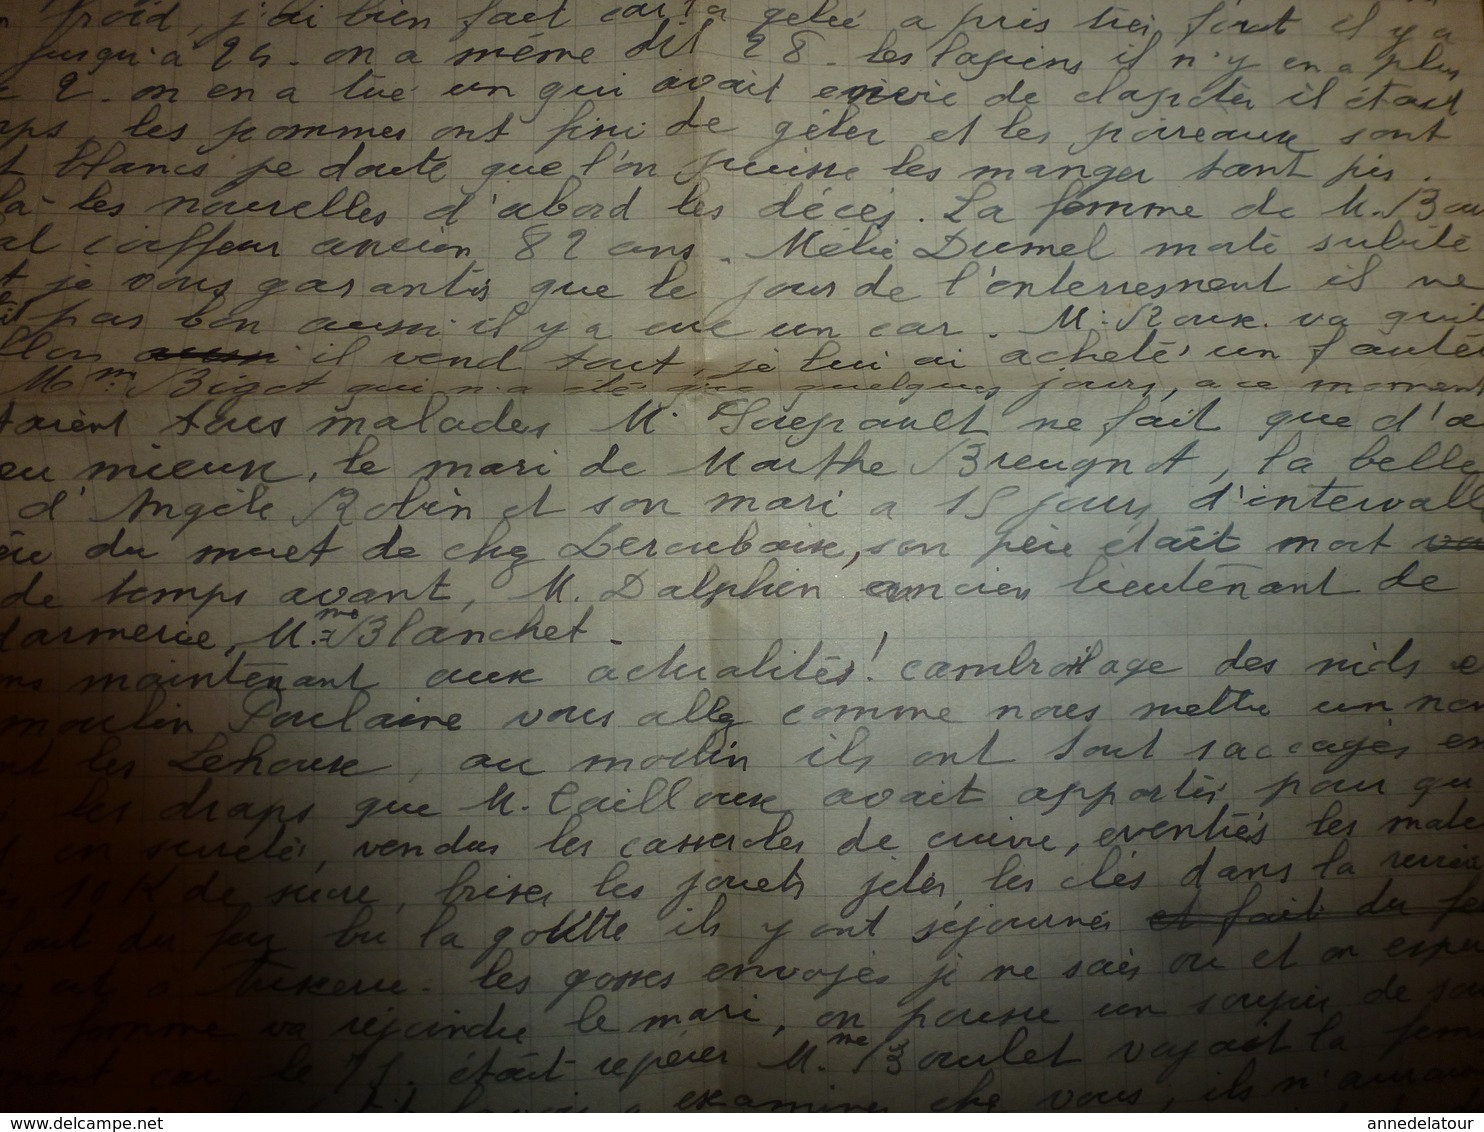 froid, j'ai bien fait car la gelée a pris très fort il y a
jusqu'à 24 - on a même dit 28 - les lapins il n'y en a plus
2 - on en a tué un qui avait envie de claqter il était
les pommes ont fini de géler et les poireaux sont
blancs je doute que l'on puisse les manger tant pis.
les nouvelles d'abord les décès. La femme de M. Bou
coiffeur ancien 82 ans. Mélie Dumel morte subite
je vous garantis que le jour de l'enterrement il ne
pas bon aussi il y a eue un car. M. Roux va quit
il vend tout, je lui ai acheté un fauteu
Mme Bigot qui n'a été que quelques jours, a ce moment
taient tous malades M. ne fait que d'a
eu mieux, le mari de Marthe Breugnot, la belle
d'Angèle Robin et son mari a 15 jours d'intervall
du muet de chez Leroubaix, son père était mort
de temps avant, M. Dalphin ancien lieutenant de
darmerie, Mme Blanchet.
ns maintenant aux actualités! cambrolage des nids
moulin Poulaine vous allez comme nous mettre un nom
les Lehoux, au moulin ils ont tout saccagés en
les draps que M. Cailloux avait apportés pour qu
en sureté, vendus les casseroles de cuivre, eventrés les mate
10 K de sucre, brisés les jouets jetés les clés dans la rivière
fait du feu bu la goutte ils y ont séjourné et fait du fe
les gosses envoyés je ne sais ou et on espère
femme va rejoindre le mari, on pousse un soupir de sou
car le 75 était repérer Mme Boulet voyait la fem
examiner chez vous, ils n'auraient
annedelatour